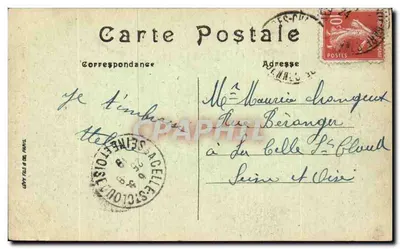 Carte Postale
Correspondance
Adresse
Je t'embrasse
Mr Maurice Changeux
Rue Béranger
à La Celle St Cloud
Seine et Oise
LA CELLE-ST-CLOUD
SEINE-ET-OISE
POSTES
10
CPAPHIL